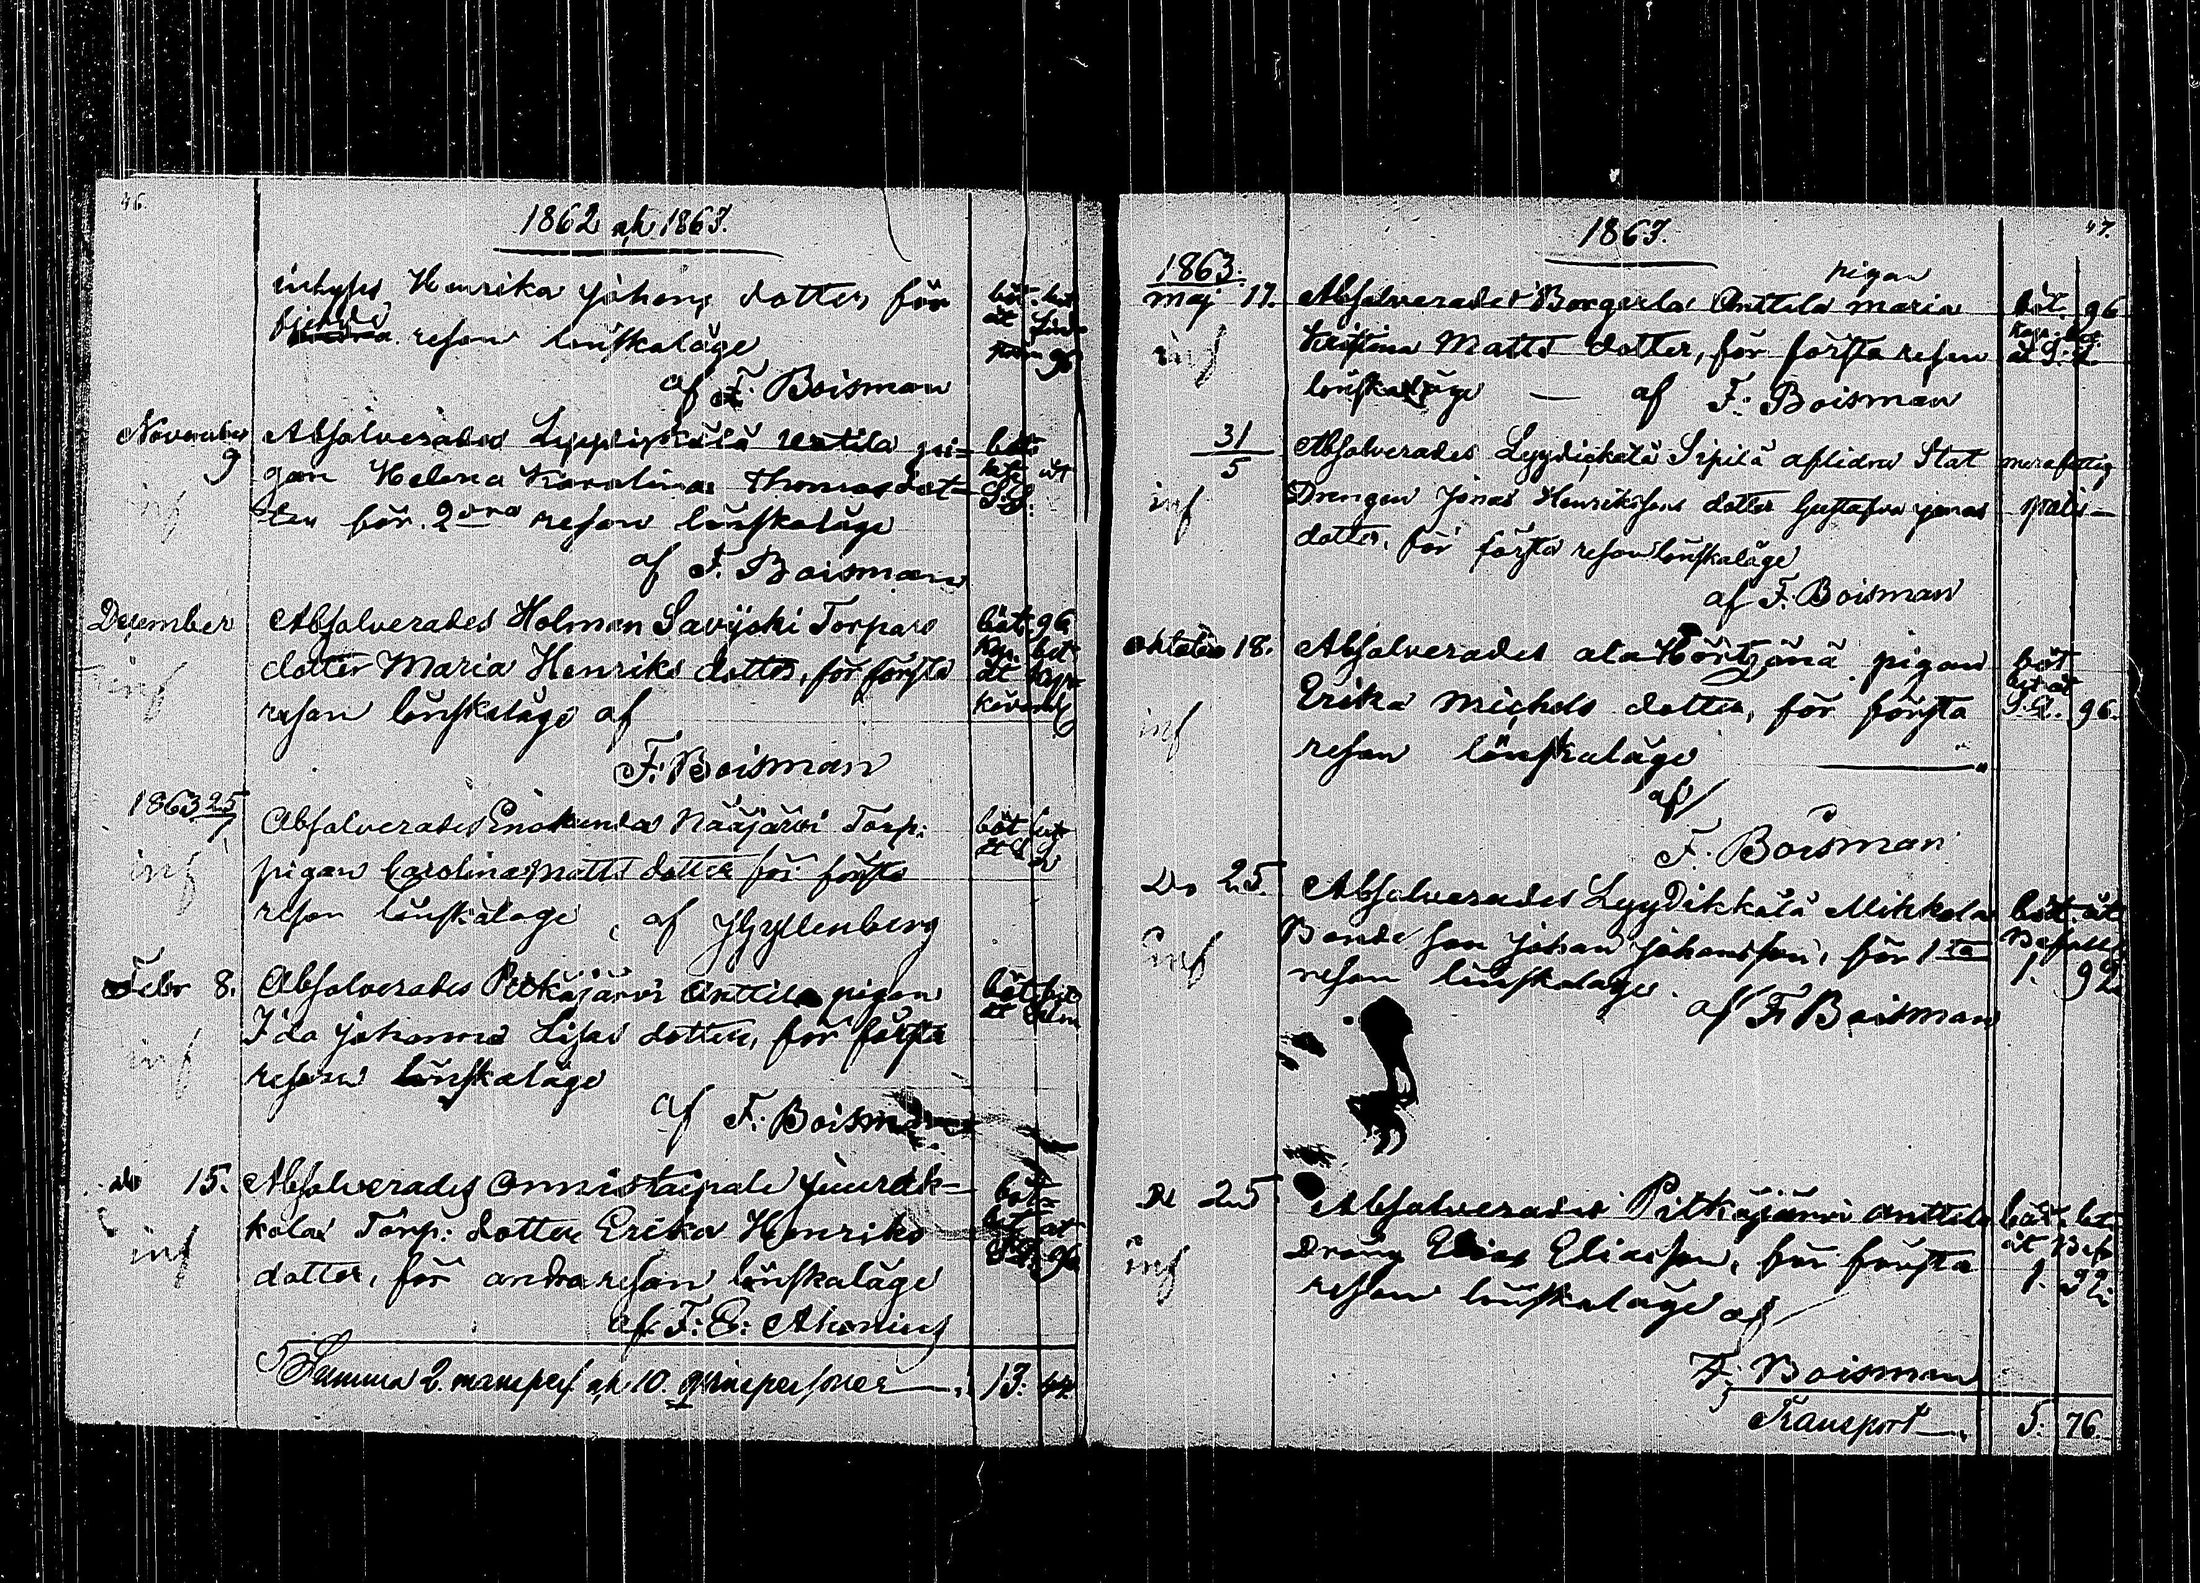 46.
1862 och 1863.
inhyses Henrika Johans dotter för böt. bet
fjerde resan lönskaläge åt
96
af F. Boisman
November Absolverades Lyydiskälä Uotila pi=
9 gan Helena Karolina Thomasdot= åt
inf ter för 2dra resan lönskaläge
af F. Boisman
December Absolverades Holman Savijoki Torpare böt. 96
inf dotter Maria Henriks dotter, för första bet
resan lönskaläge af
F. Boisman
1863 25/1 Absolverades Enokunda Nääjärvi Torp: böt
inf pigan Carolina Matts dotter för första
resan lönskaläge, af J Gyllenberg
Febr 8. Absolverades Pitkäjärvi Anttila pigan böt. bet
Ida Johanna Lisas dotter, för första åt
inf resan lönskaläge
af F. Boisman
do 15. Absolverades Onnistaipale Juurak= böt
kola Torp: dotter Erika Henriks bet åt
inf dotter, för andra resan lönskaläge 96
af F: E: Ahonius
Summa 2. mansperf och 10. qvinspersoner 13. 44
47.
1863.
1863. pigan
Maj 17. Absolverades Borgerla Anttila Maria böt. 96
inf Kristina Matts dotter, för första resan
lönskaläge — af F. Boisman
31/5 Absolverades Lyydickälä Sipilä aflidne Stat
inf Drengen Jonas Henrikssons dotter Gustafva Jonas
dotter, för första resan lönskaläge
af F. Boisman
oktober 18. Absolverades ala Hörtjänä pigan böt
Erika Michels dotter, för första bet åt 96.
inf resan lönskaläge
af
F. Boisman
Do 25. Absolverades Lyydikkälä Mikkola böt. åt
inf Bonde son Johan Johansson, för 1sta
resan lönskaläge. 1. 92
af F. Boisman
D: 25 Absolverades Pitkäjärvi Anttila böt. bet
inf Dräng Elias Eliasson, för första åt
resan lönskaläge af 1. 92
F. Boisman
Transport 5. 76